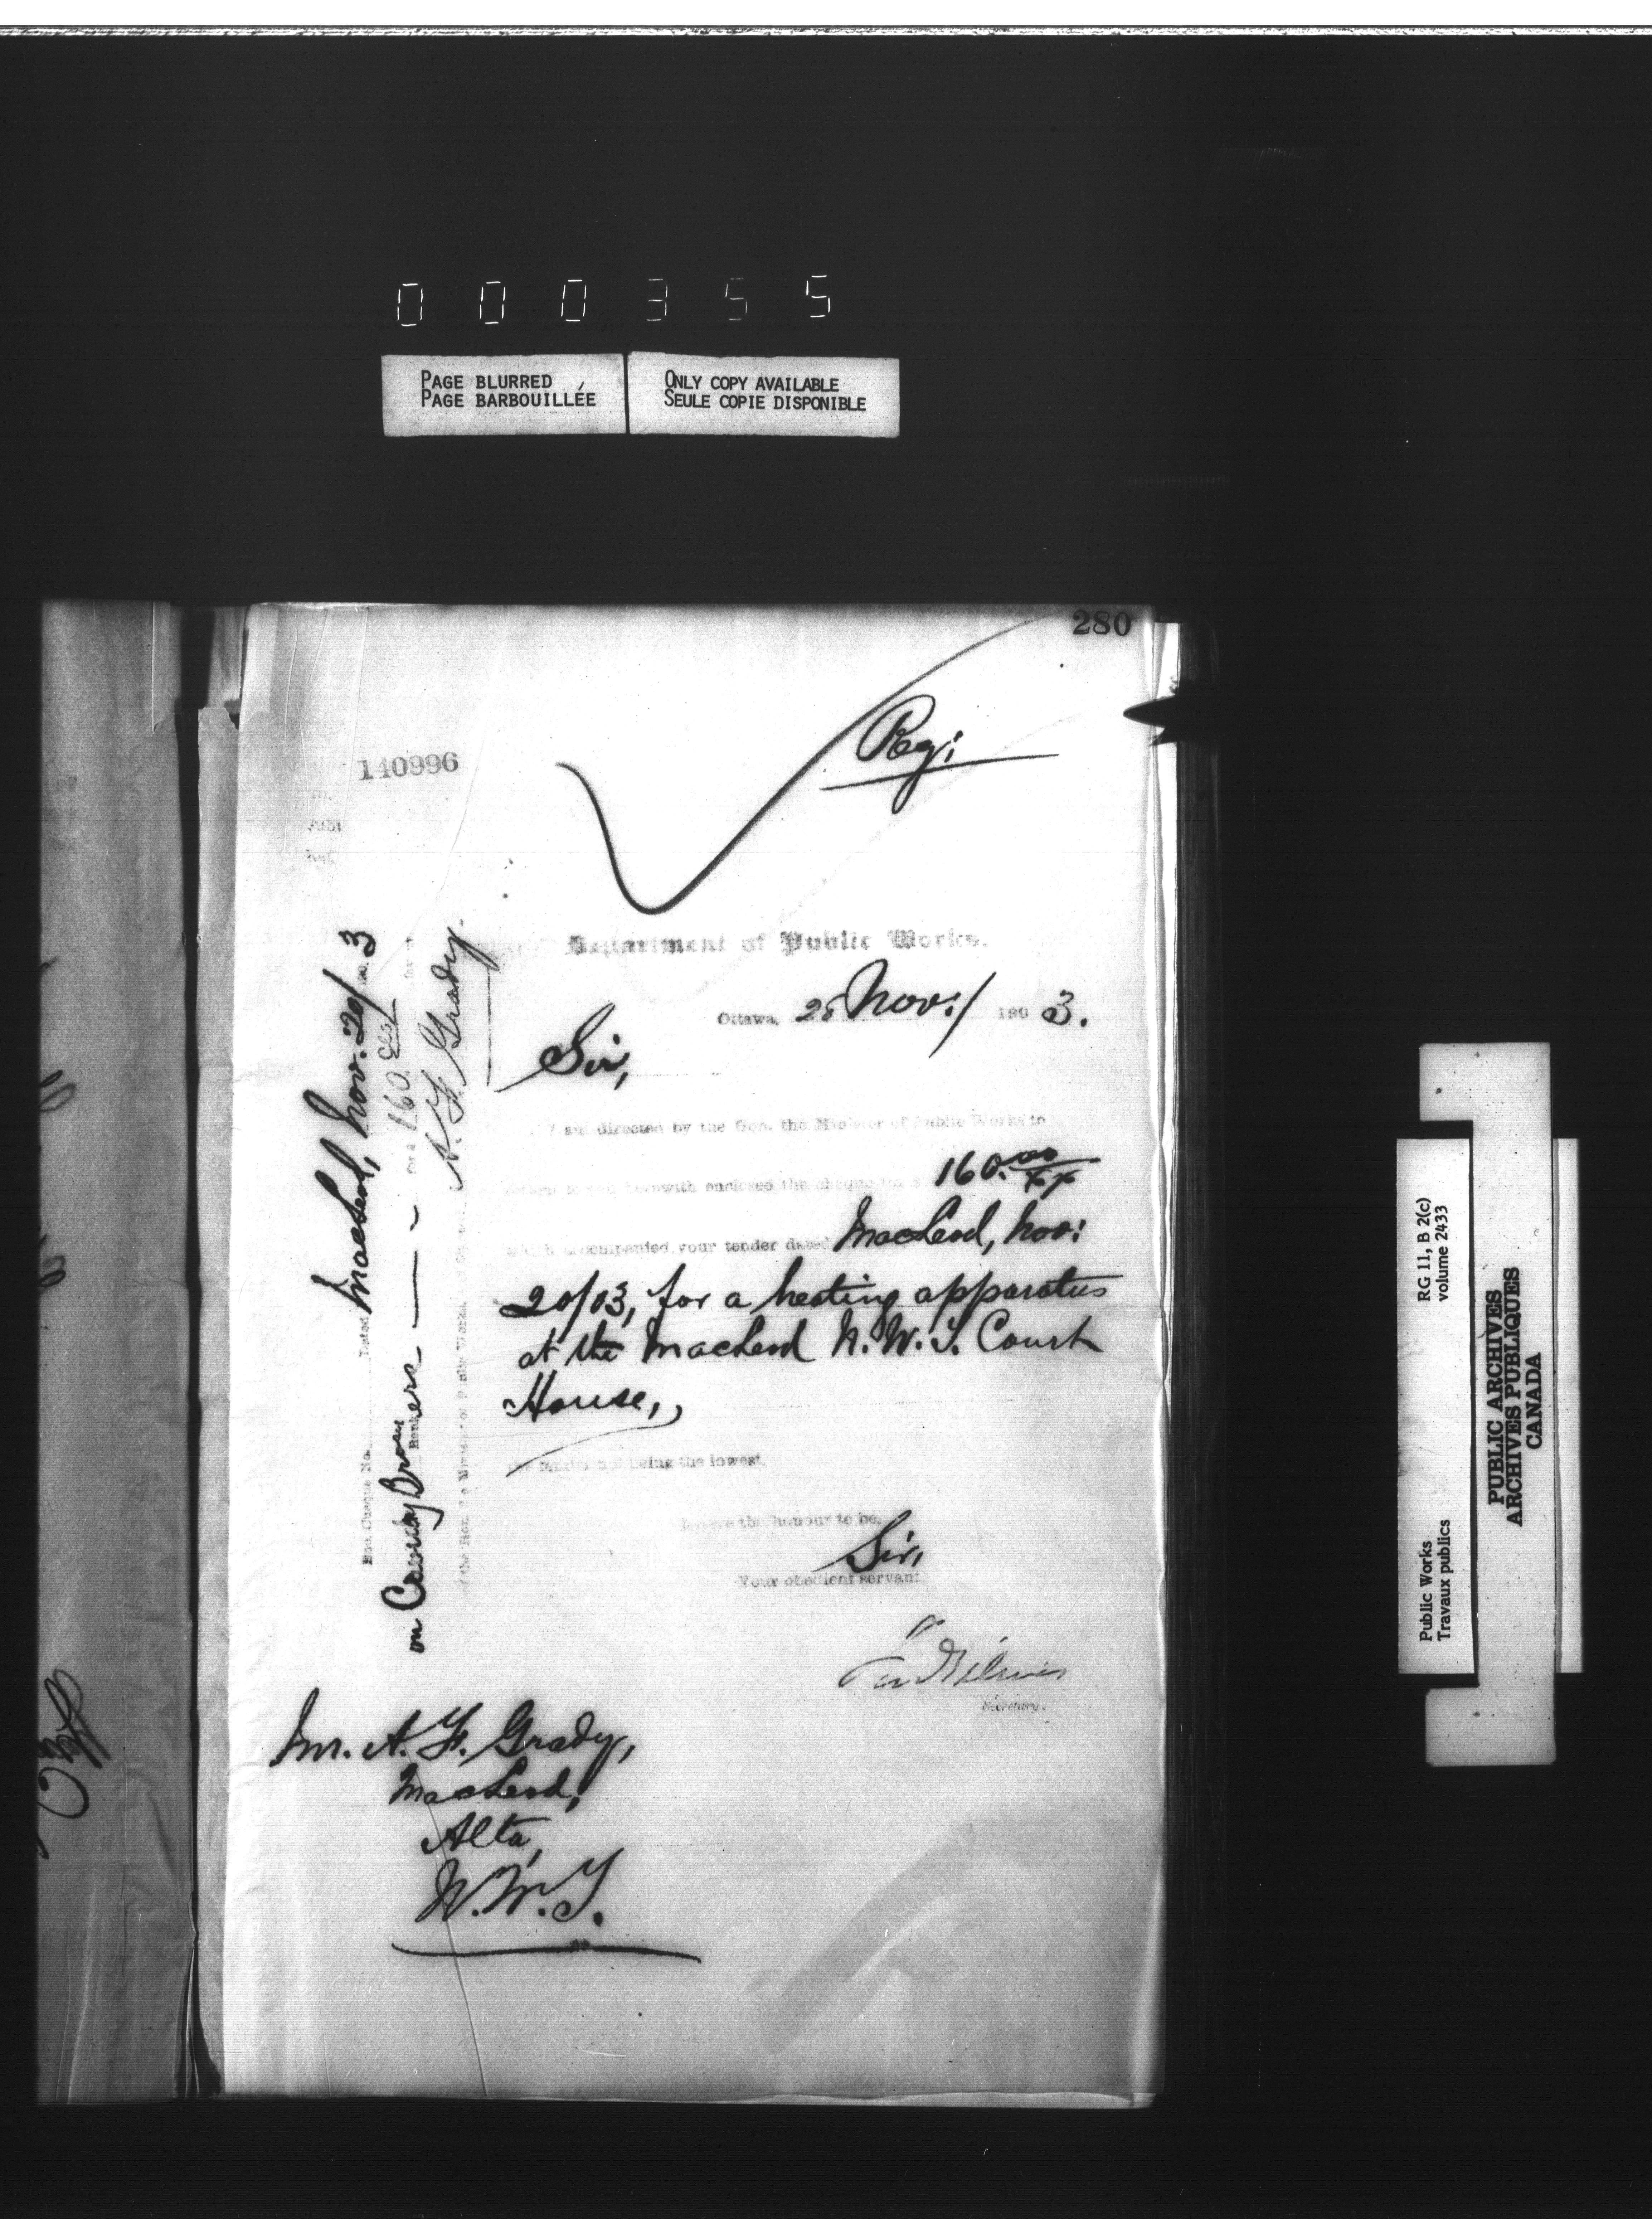 000355
PAGE BLURRED
PAGE BARBOUILLÉE
ONLY COPY AVAILABLE
SEULE COPIE DISPONIBLE
280
Reg:
140996
Department of Public Works.
Ottawa, 28 Nov:/ 190 3.
Sir,
I am directed by the Hon. the Minister of Public Works to
herewith enclosed the cheque 160.00/xx
which accompanied your tender dated MacLeod, Nov:
20/03, for a heating apparatus
at the MacLeod N.W.T. Court
House,
the tender not being the lowest.
I have the honour to be,
Sir,
Your obedient servant
Secretary.
Mr. A. F. Grady,
MacLeod,
Alta,
N.W.T.
Cheque No. Dated MacLeod, Nov. 20/ 190 3
on Cowdry Bros Bankers for $ 160.
of the Hon. the Minister of Public Works
A. F. Grady.
Public Works
Travaux publics
RG 11, B 2(c)
volume 2433
PUBLIC ARCHIVES
ARCHIVES PUBLIQUES
CANADA